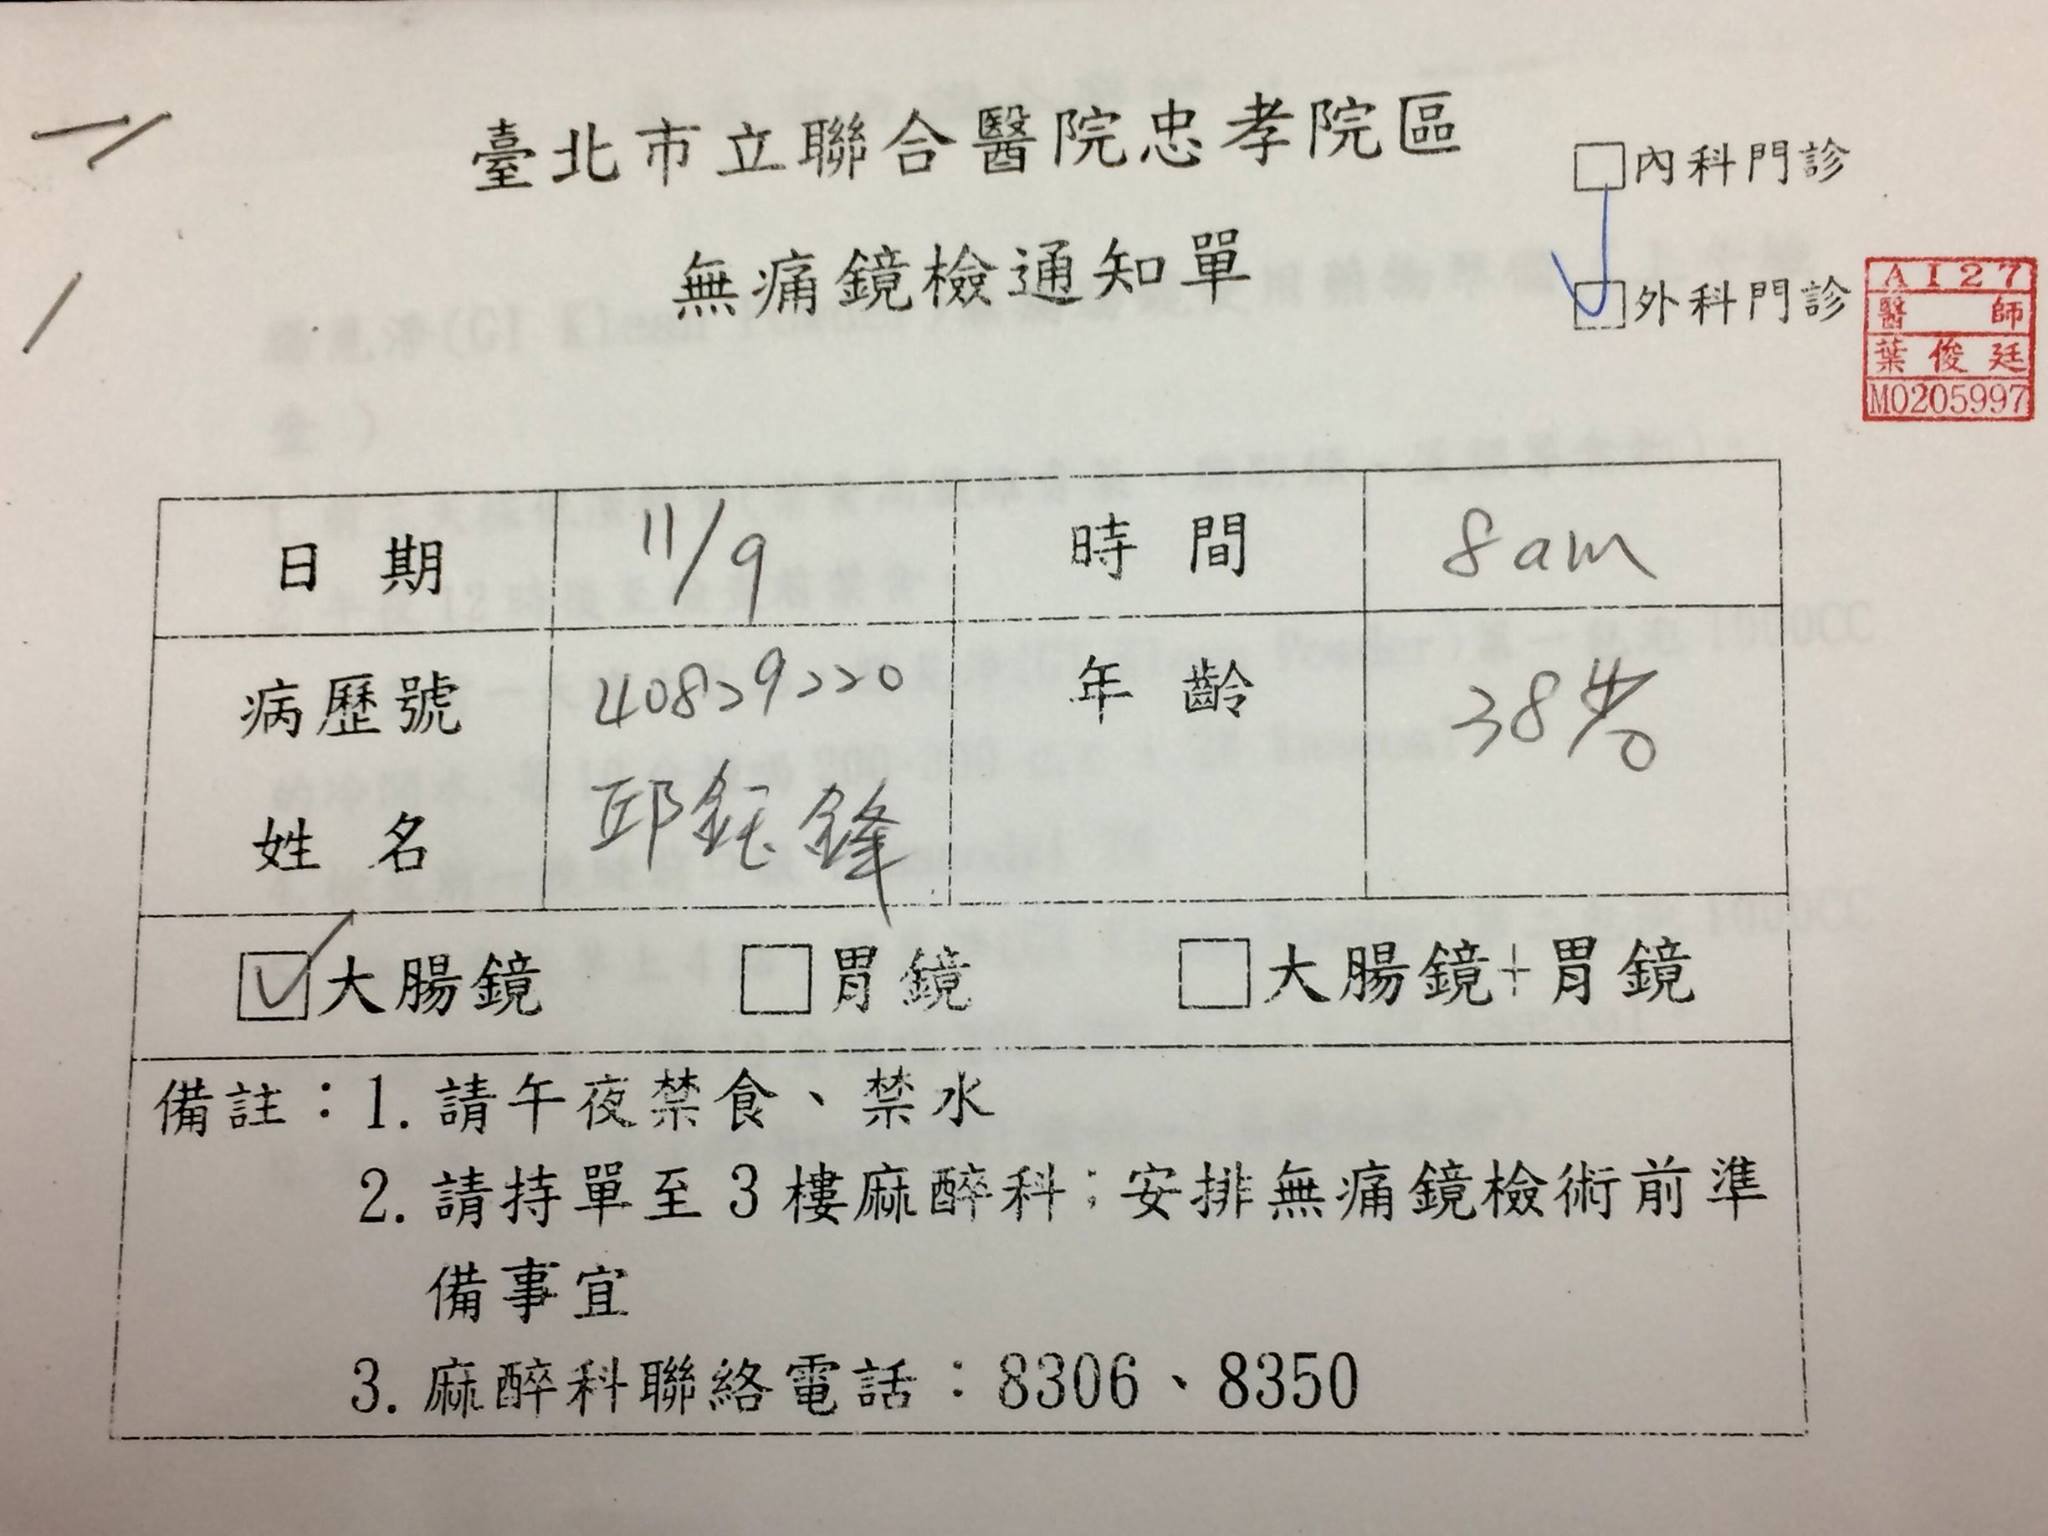 臺北市立聯合醫院忠孝院區
無痛鏡檢通知單
內科門診
外科門診
AI27
醫師
葉俊廷
M0205997
日期 11/9 時間 8am
病歷號 40829220 年齡 38
姓名 邱鈺鋒
大腸鏡 胃鏡 大腸鏡+胃鏡
備註：1. 請午夜禁食、禁水
2. 請持單至3樓麻醉科；安排無痛鏡檢術前準
備事宜
3. 麻醉科聯絡電話：8306、8350